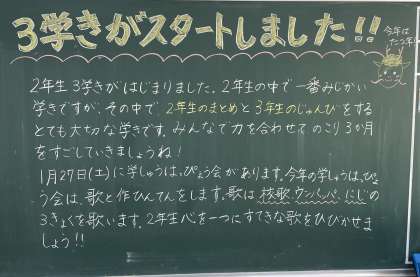 3学きがスタートしました!!
今年は
たつ年
2年生 3学きがはじまりました。2年生の中で一番みじかい
学きですが、その中で、2年生のまとめと3年生のじゅんびをする
とても大切な学きです。みんなで力を合わせてのこり3か月
をすごしていきましょうね!
1月27日(土)に学しゅうはっぴょう会があります。今年の学しゅうはっぴょ
う会は、歌と作ひんてんをします。歌は校歌、ウンパッパ、にじの
3きょくを歌います。2年生心を一つにすてきな歌をひびかせま
しょう!!